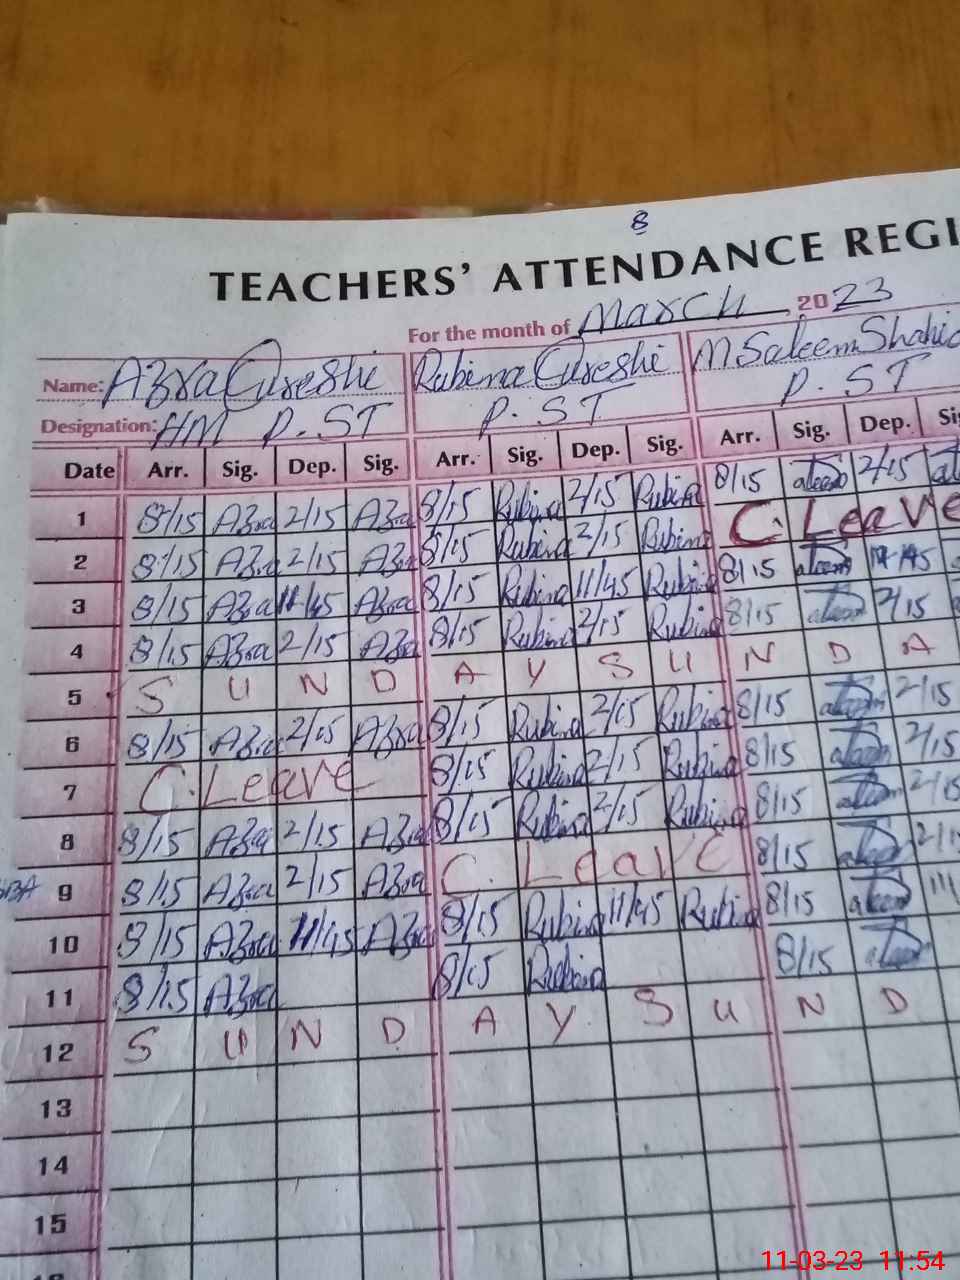 8
TEACHERS' ATTENDANCE REGI
For the month of March 2023
Name: Azra Qureshi Rubina Qureshi M Saleem Shahid
Designation: HM P.ST P.ST P.ST
Date Arr. Sig. Dep. Sig. Arr. Sig. Dep. Sig. Arr. Sig. Dep. Si
1 8/15 Azra 2/15 Azra 8/15 Rubina 2/15 Rubina 8/15 2/15
2 8/15 Azra 2/15 Azra 8/15 Rubina 2/15 Rubina C. Leave
3 8/15 Azra 11/45 Azra 8/15 Rubina 11/45 Rubina 8/15
4 8/15 Azra 2/15 Azra 8/15 Rubina 2/15 Rubina 8/15 2/15
5 S U N D A Y S U N D A
6 8/15 Azra 2/15 Azra 8/15 Rubina 2/15 Rubina 8/15 2/15
7 C. Leave 8/15 Rubina 2/15 Rubina 8/15 2/15
8 8/15 Azra 2/15 Azra 8/15 Rubina 2/15 Rubina 8/15 2/15
9 8/15 Azra 2/15 Azra C. Leave 8/15 2/1
10 8/15 Azra 11/45 Azra 8/15 Rubina 11/45 Rubina 8/15 11/
11 8/15 Azra 8/15 Rubina 8/15
12 S U N D A Y S U N D
13
14
15
11-03-23 11:54